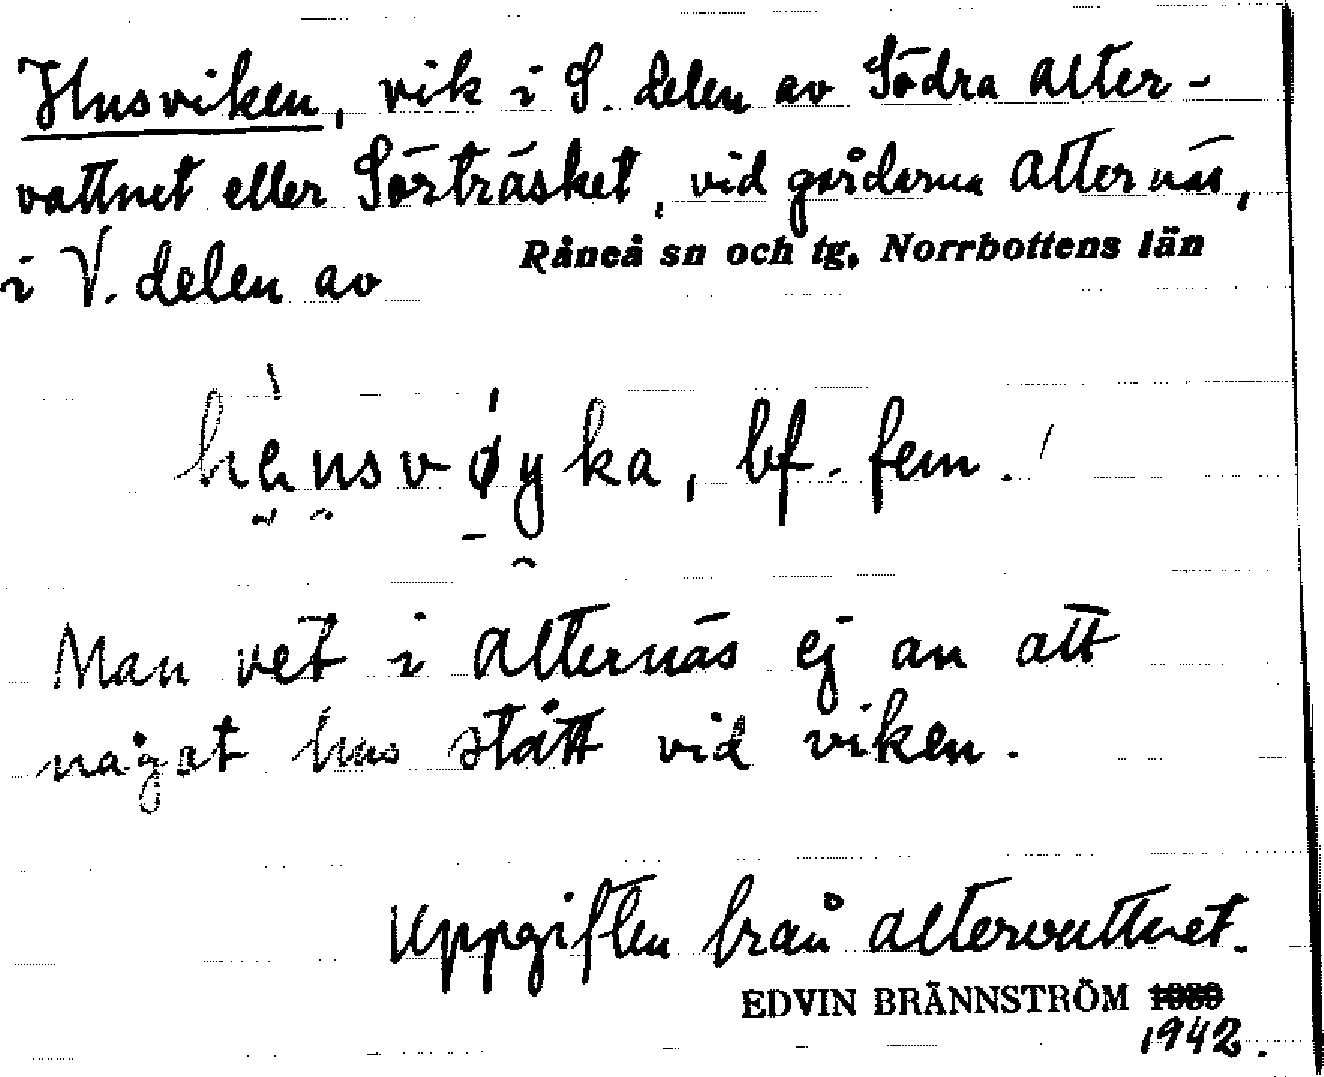 Husviken, vik i S. delen av Södra Alter-
vattnet eller Sörträsket, vid gårdarna Alternäs,
i V. delen av Råneå sn och tg, Norrbottens län
bf. fem. !
Man vet i Alternäs ej an att
något hus stått vid viken.
Uppgiften från Altervattnet.
EDVIN BRÄNNSTRÖM
1942.